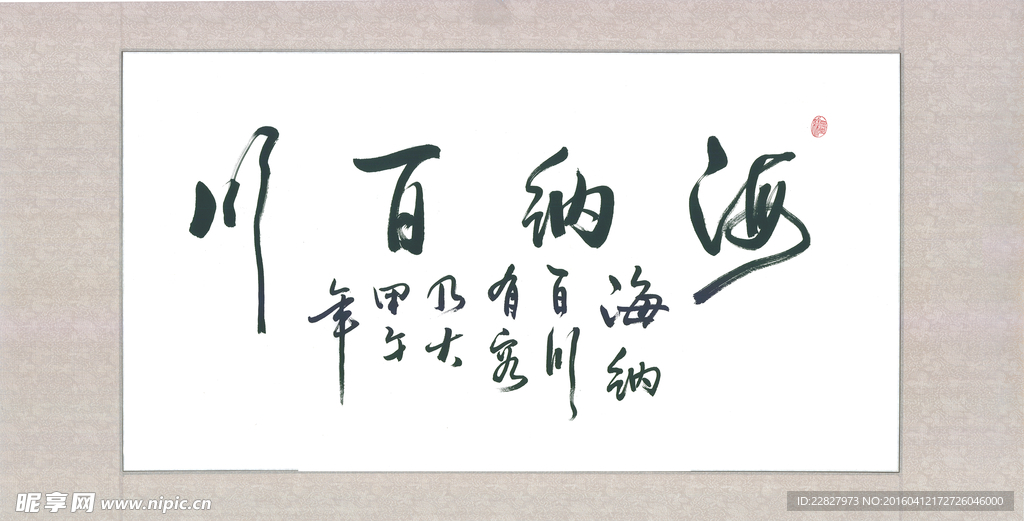 海納百川
海納
百川
有容
乃大
甲午
年
昵享网 www.nipic.cn
ID:22827973 NO:20160412172726046000